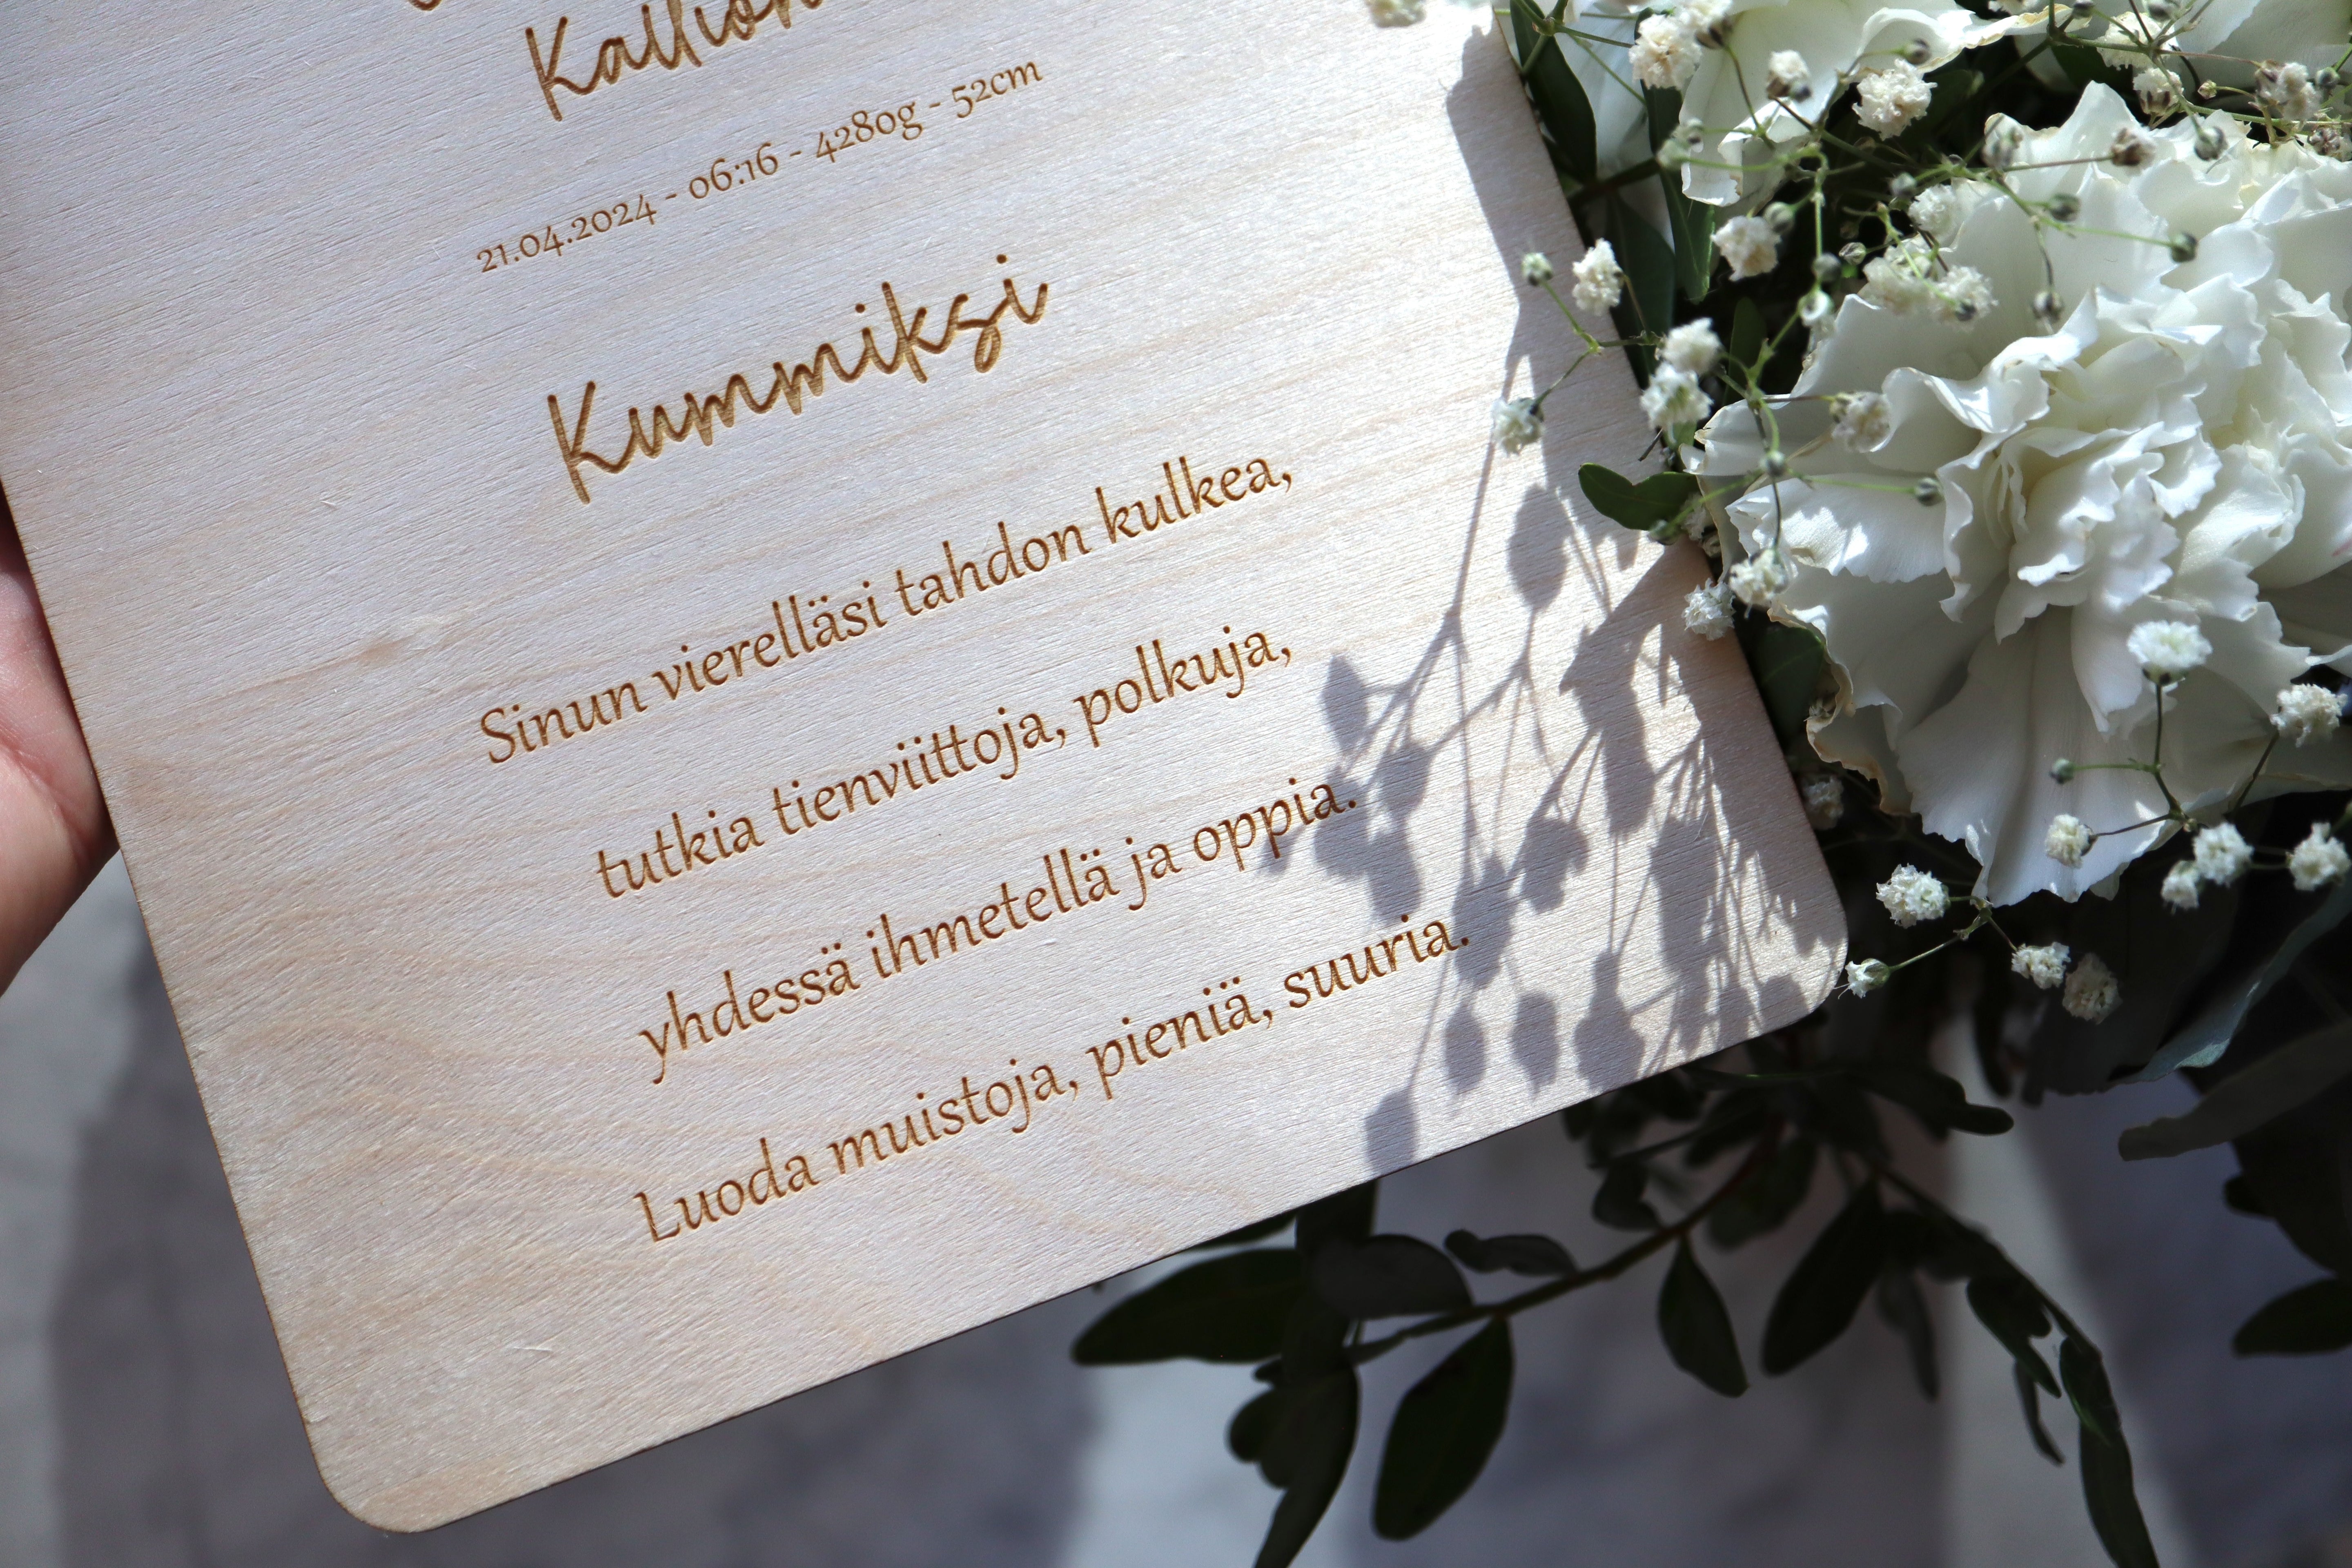 21.04.2024 - 06:16 - 4280g - 52cm
Kummiksi
Sinun vierelläsi tahdon kulkea,
tutkia tienviittoja, polkuja,
yhdessä ihmetellä ja oppia.
Luoda muistoja, pieniä, suuria.